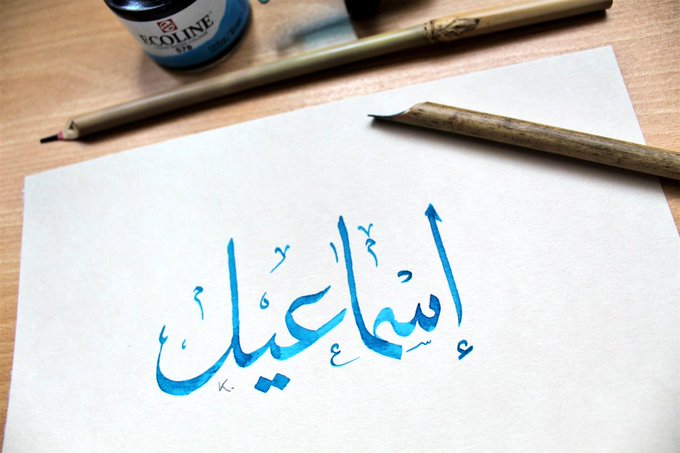 ECOLINE
578
إسماعيل
K.